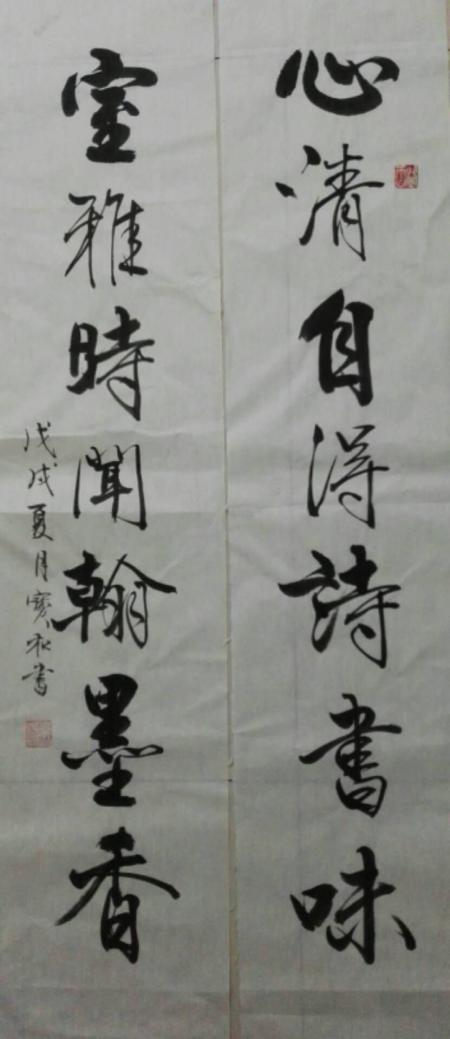 心清自得詩書味
室雅時聞翰墨香
戊戌夏月寶秋書